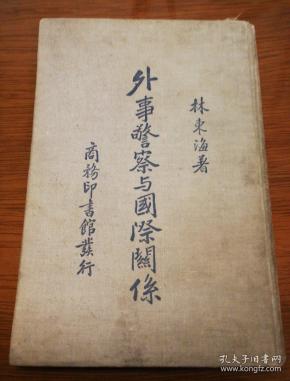 林東海著
外事警察与國際關係
商務印書館發行
孔夫子旧书网